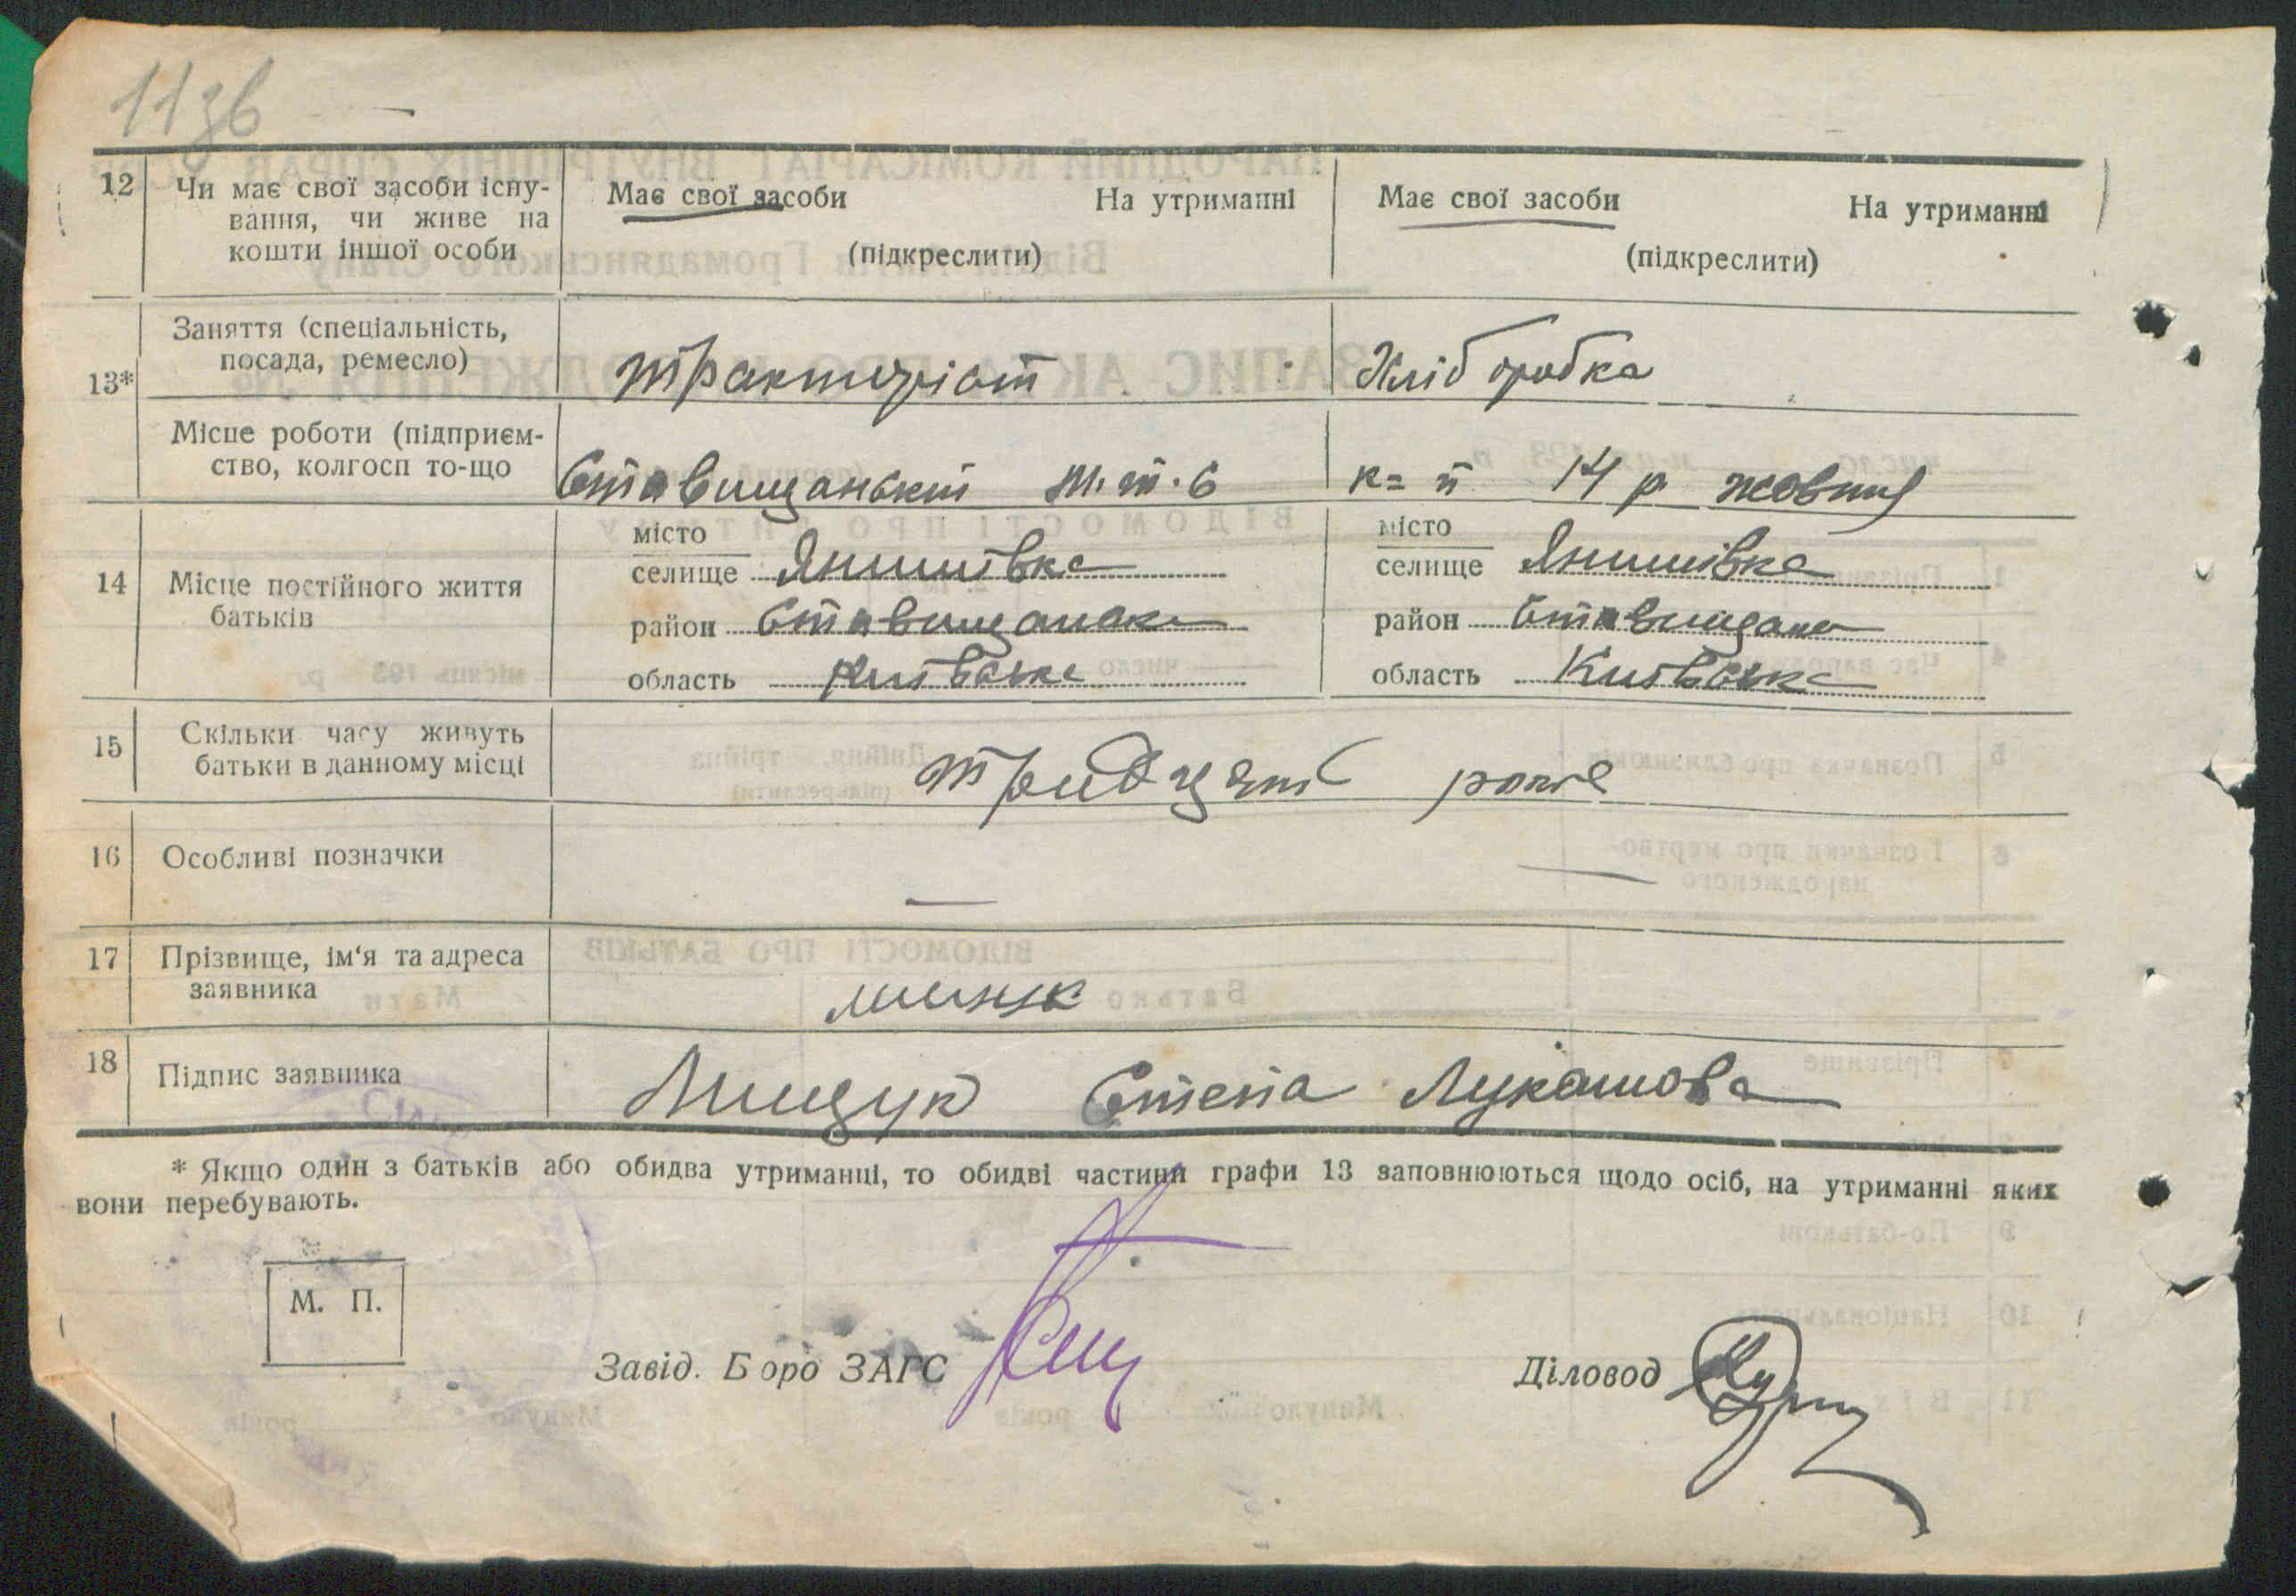 11зв
12 Чи має свої засоби існу-
вання, чи живе на
кошти іншої особи
Має свої засоби На утриманні
(підкреслити)
Має свої засоби На утриманні
(підкреслити)
13*
Заняття (спеціальність,
посада, ремесло)
тракторіст
Хліборобка
Місце роботи (підприєм-
ство, колгосп то-що
Ставищанський м.т.с
к-п 14 р жовтня
14 Місце постійного життя
батьків
місто
селище Янишівка
район Ставищанськ
область Київська
місто
селище Янишівка
район Ставищанс
область Київська
15 Скільки часу живуть
батьки в данному місці
тридцять років
16 Особливі позначки
— —
17 Прізвище, ім'я та адреса
заявника
18 Підпис заявника
Лищук Степа Лукашова
* Якщо один з батьків або обидва утриманці, то обидві частини графи 13 заповнюються щодо осіб, на утриманні яких
вони перебувають.
М. П.
Завід. Бюро ЗАГС
Діловод